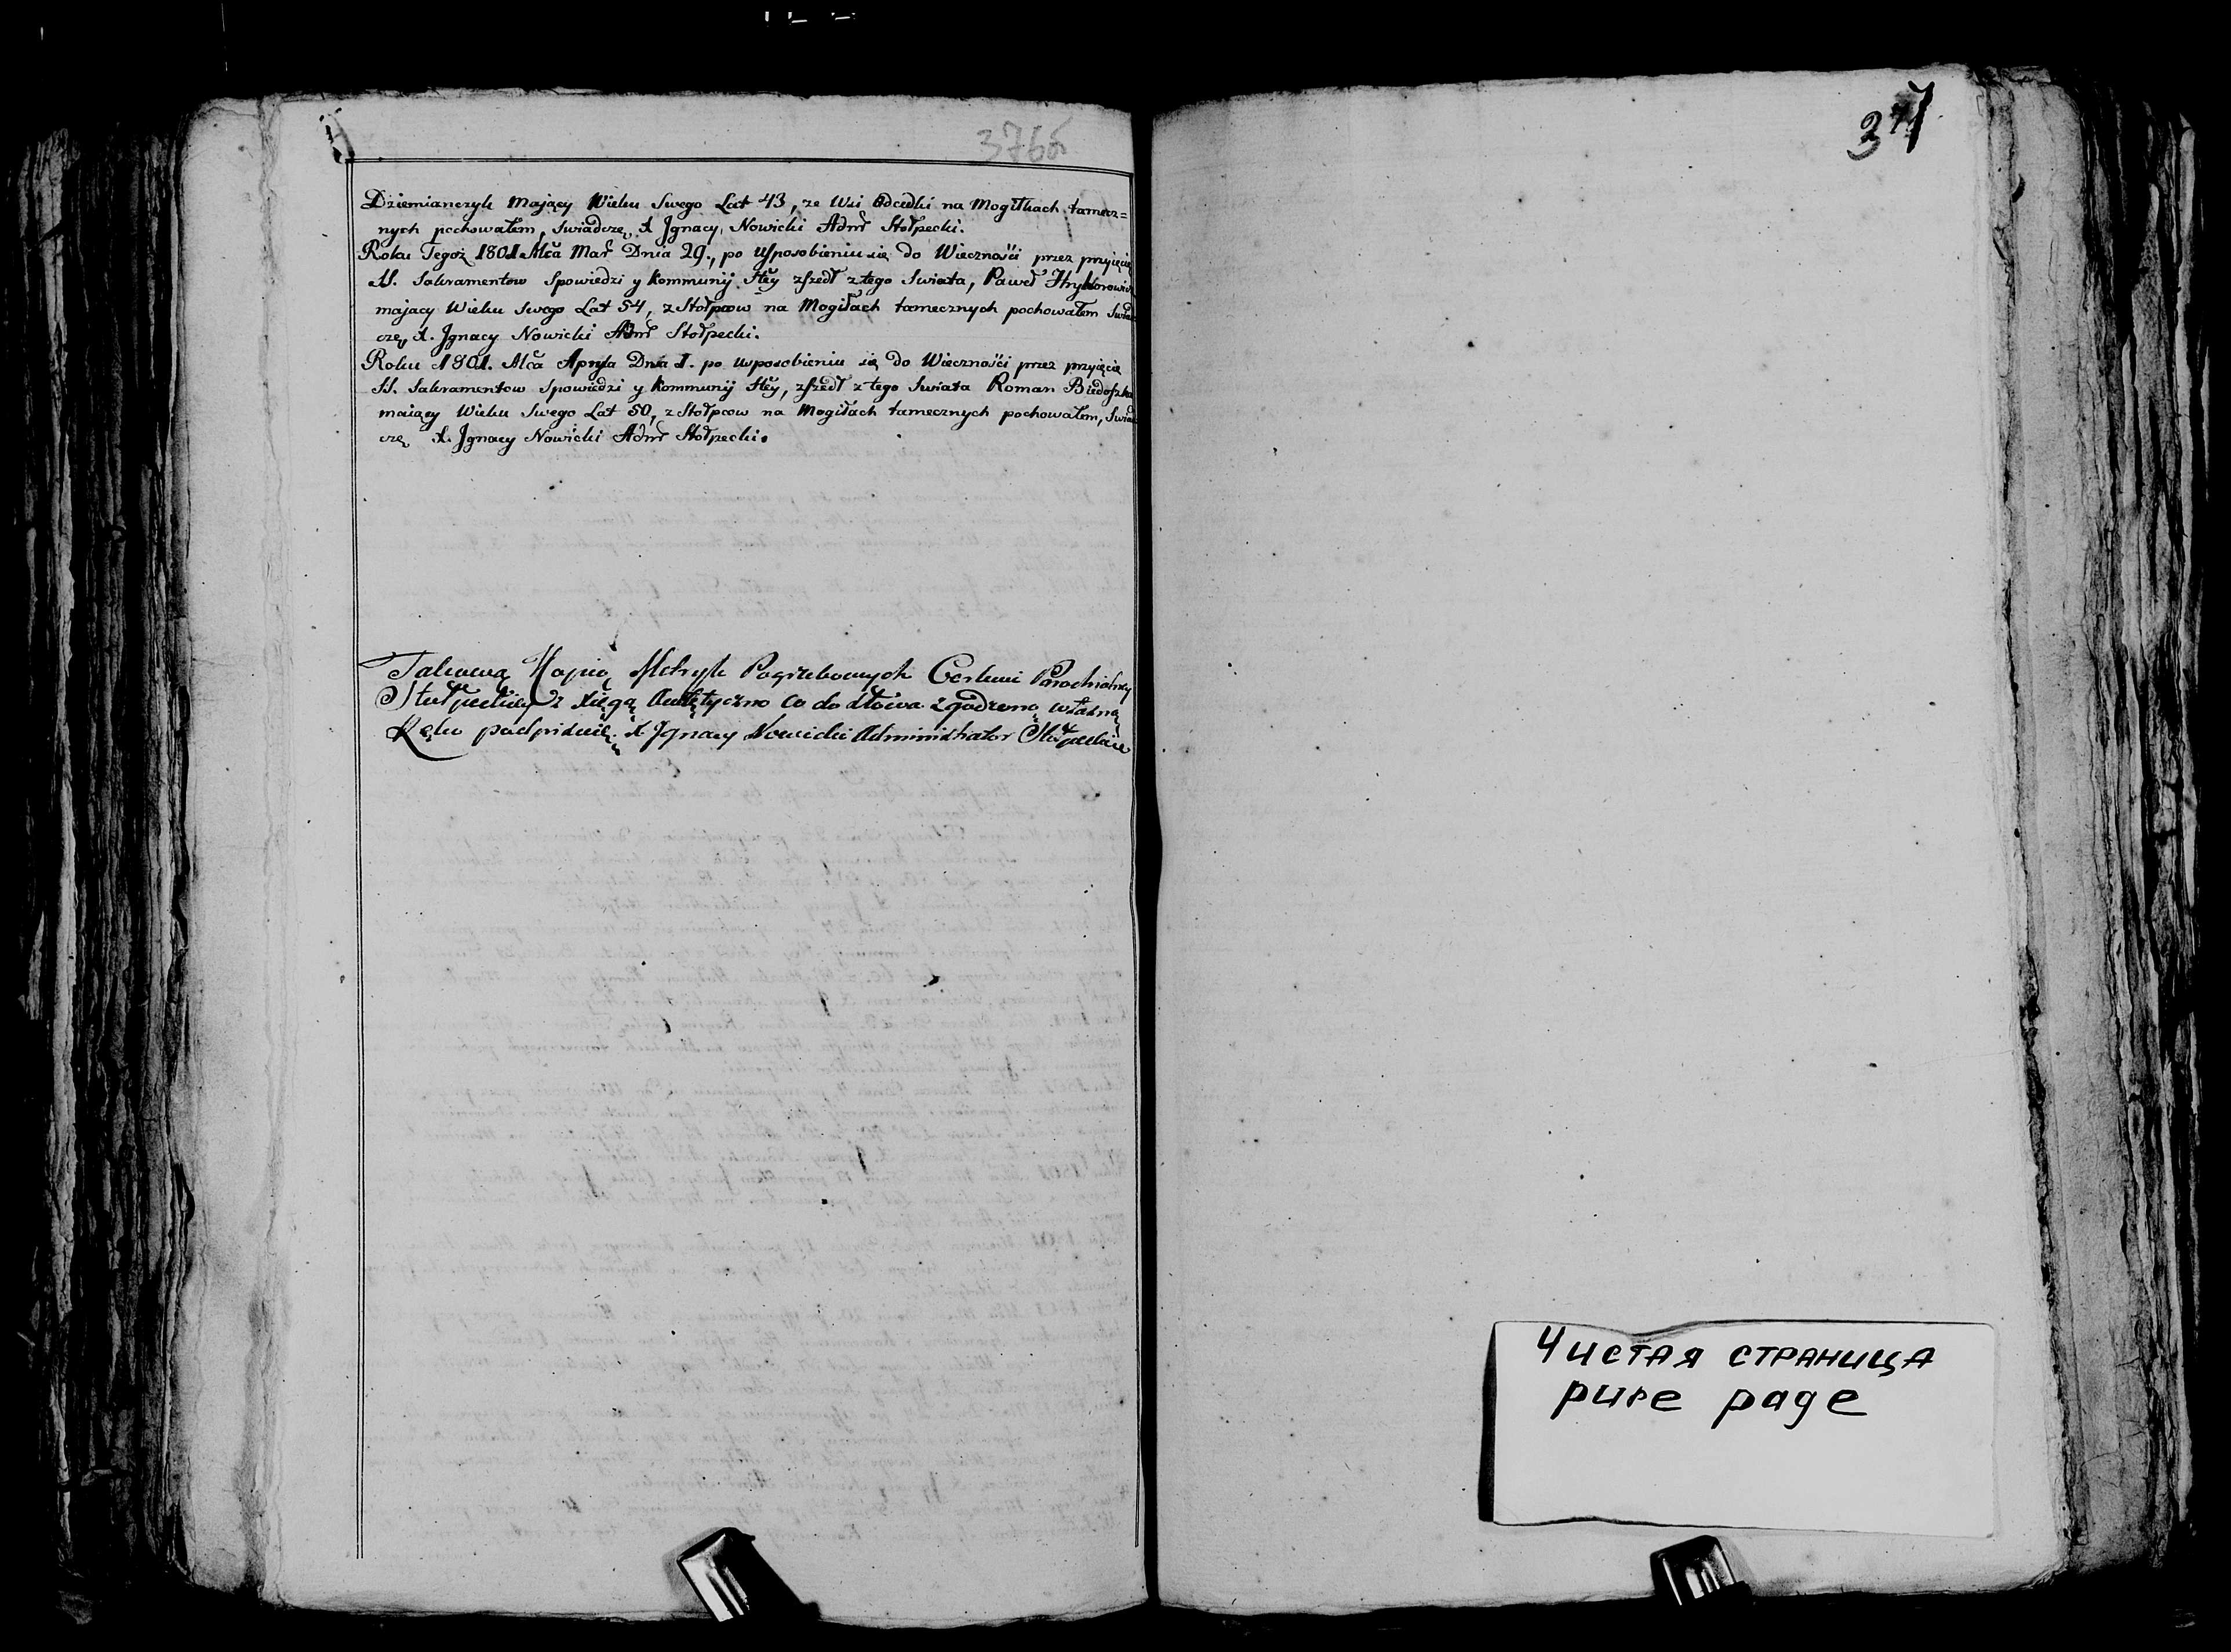 376об
Dziemianczyk Mający Wieku Swego Lat 43, ze Wsi na Mogiłkach tamecz=
nych pochowałem, Swiadczę, X Jgnacy Nowicki Admr Stołpecki.
Roku Tegoż 1801 Mca Mar Dnia 29., po Usposobieniu się do Wiecznosći przez przyięcie
SS. Sakramentow Spowiedzi y Kommunij Stey zszedł z tego Swiata, Paweł
mający Wieku Swego Lat 54, z Stołpcow na Mogiłach tamecznych pochowałem Swiad
czę, X. Jgnacy Nowicki Admr Stołpecki.
Roku 1801. Mca Apryla Dnia 1. po usposobieniu się do Wiecznośći przez przyięcie
SS. Sakramentow Spowiedzi y Kommunij Stey, zszedł z tego Swiata Roman
maiący Wieku Swego Lat 50, z Stołpcow na Mogiłach tamecznych pochowałem, Swiad
czę X. Jgnacy Nowicki Admr Stołpecki.
Takową Kopią Metryk Pogrzebowych Cerkwi Parochialney
Stołpeckiey z Xięgą Autętyczno Co do słowa zgodzoną własną
Ręko podpisuię. X Jgnacy Nowicki Administrator
377
Чистая страница
pure page